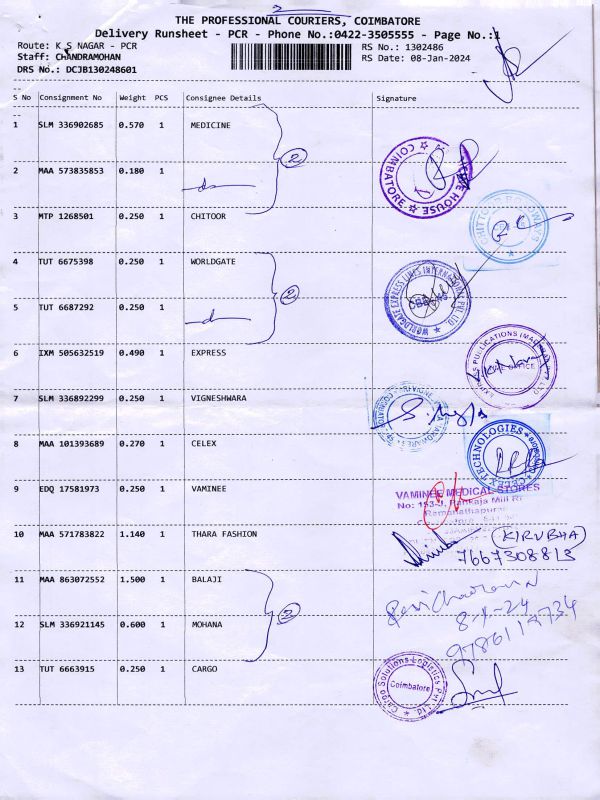 THE PROFESSIONAL COURIERS, COIMBATORE
Delivery Runsheet - PCR - Phone No.:0422-3505555 - Page No.:1
Route: K S NAGAR - PCR
RS No.: 1302486
Staff: CHANDRAMOHAN
RS Date: 08-Jan-2024
DRS No.: DCJB130248601
S No Consignment No Weight PCS Consignee Details Signature
1 SLM 336902685 0.570 1 MEDICINE
2
2 MAA 573835853 0.180 1 -do-
HOUSE ☆ COIMBATORE ☆
3 MTP 1268501 0.250 1 CHITOOR
4 TUT 6675398 0.250 1 WORLDGATE
2
WORLDGATE EXPRESS LINES INTERNATIONAL PVT LTD
5 TUT 6687292 0.250 1 -do-
6 IXM 505632519 0.490 1 EXPRESS
7 SLM 336892299 0.250 1 VIGNESHWARA
8 MAA 101393689 0.270 1 CELEX
CELEX TECHNOLOGIES
9 EDQ 17581973 0.250 1 VAMINEE
VAMINEE MEDICAL STORES
No: 153-J, Pankaja Mill R
Ramanathapura
10 MAA 571783822 1.140 1 THARA FASHION
(KIRUBHA)
7667308813
11 MAA 863072552 1.500 1 BALAJI
2
8-1-24
12 SLM 336921145 0.600 1 MOHANA
13 TUT 6663915 0.250 1 CARGO
Cargo Solutions Logistics Pvt Ltd.
Coimbatore